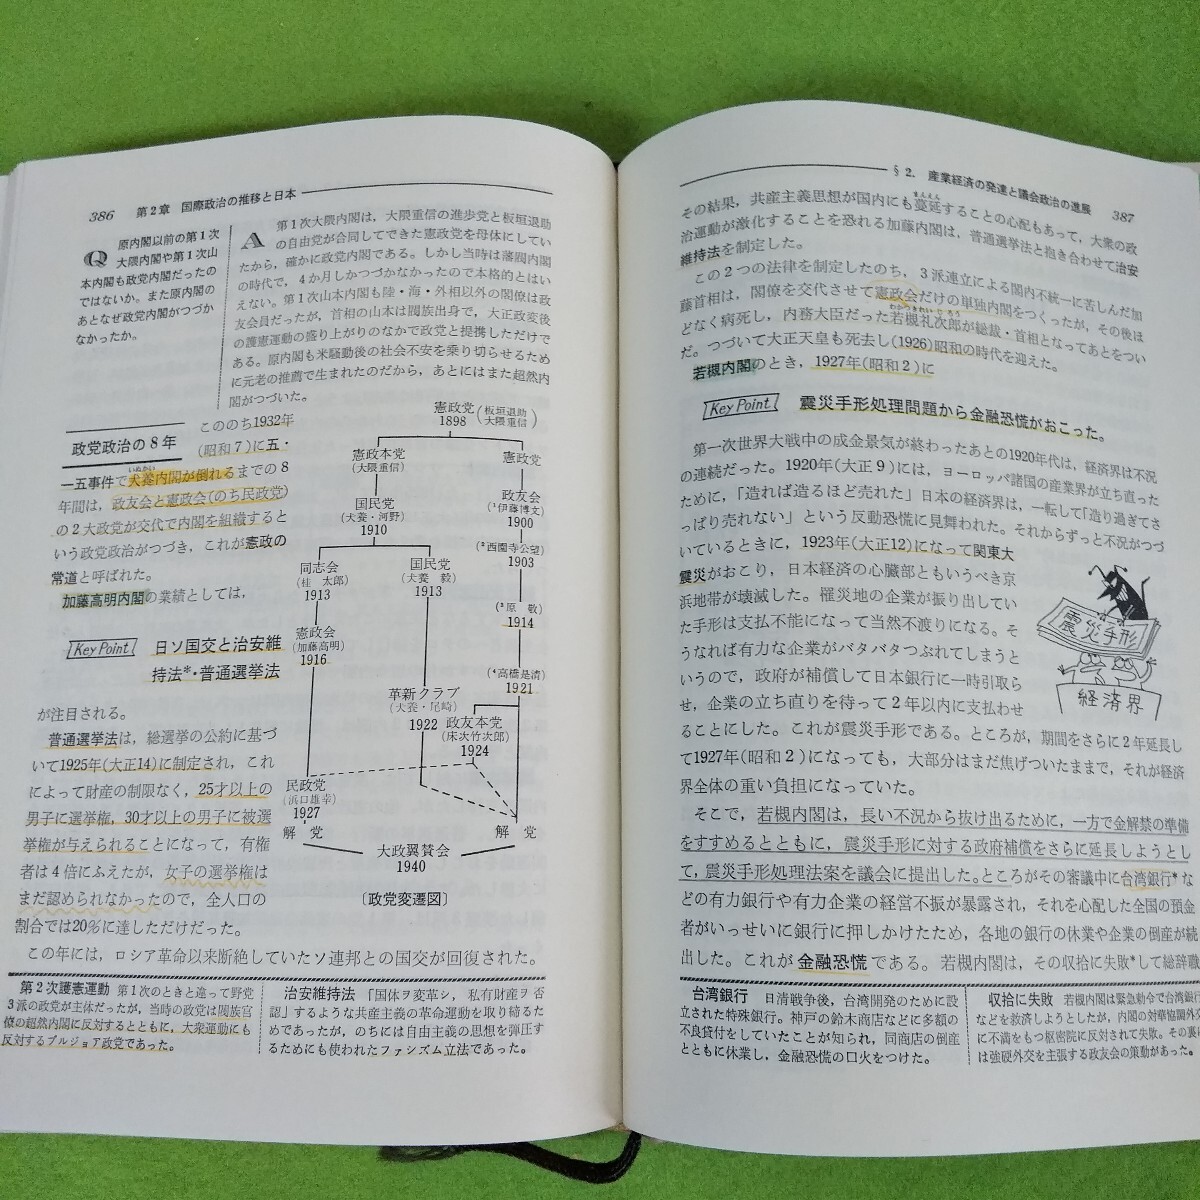 386　第2章　国際政治の推移と日本
Q　原内閣以前の第1次
大隈内閣や第1次山
本内閣も政党内閣だったの
ではないか。また原内閣の
あとなぜ政党内閣がつづか
なかったか。
A　第1次大隈内閣は，大隈重信の進歩党と板垣退助
の自由党が合同してできた憲政党を母体にしてい
たから，確かに政党内閣である。しかし当時は藩閥内閣
の時代で，4か月しかつづかなかったので本格的とはい
えない。第1次山本内閣も陸・海・外相以外の閣僚は政
友会員だったが，首相の山本は閥族出身で，大正政変後
の護憲運動の盛り上がりのなかで政党と提携しただけで
ある。原内閣も米騒動後の社会不安を乗り切らせるため
に元老の推薦で生まれたのだから，あとにはまた超然内
閣がつづいた。
政党政治の8年
このあと1932年
（昭和7）に五・
一五事件で犬養内閣が倒れるまでの8
いぬかい
年間は，政友会と憲政会（のち民政党）
の2大政党が交代で内閣を組織すると
いう政党政治がつづき，これが憲政の
常道と呼ばれた。
加藤高明内閣の業績としては，
Key Point　日ソ国交と治安維
持法*・普通選挙法
が注目される。
普通選挙法は，総選挙の公約に基づ
いて1925年(大正14)に制定され，これ
によって財産の制限なく，25才以上の
男子に選挙権，30才以上の男子に被選
挙権が与えられることになって，有権
者は4倍にふえたが，女子の選挙権は
まだ認められなかったので，全人口の
割合では20％に達しただけだった。
この年には，ロシア革命以来断絶していたソ連邦との国交が回復された。
憲政党（板垣退助 大隈重信）
1898
憲政本党
（大隈重信）
憲政党
国民党
（犬養・河野）
1910
政友会
（¹伊藤博文）
1900
（²西園寺公望）
1903
同志会
（桂　太郎）
1913
国民党
（犬養　毅）
1913
（³原　敬）
1914
憲政会
（加藤高明）
1916
（⁴高橋是清）
1921
革新クラブ
（犬養・尾崎）
1922
政友本党
（床次竹次郎）
1924
民政党
（浜口雄幸）
1927
解　党
解　党
大政翼賛会
1940
〔政党変遷図〕
第2次護憲運動　第1次のときと違って野党
3派の政党が主体だったが，当時の政党は閥族官
僚の超然内閣に反対するとともに，大衆運動にも
反対するブルジョア政党であった。
治安維持法　「国体ヲ変革シ，私有財産ヲ否
認」するような共産主義の革命運動を取り締るた
めであったが，のちには自由主義の思想を弾圧す
るためにも使われたファシズム立法であった。
§2.　産業経済の発達と議会政治の進展　387
その結果，共産主義思想が国内にも蔓延することの心配もあって，大衆の政
まんえん
治運動が激化することを恐れる加藤内閣は，普通選挙法と抱き合わせて治安
維持法を制定した。
この2つの法律を制定したのち，3派連立による閣内不統一に苦しんだ加
藤首相は，閣僚を交代させて憲政会だけの単独内閣をつくったが，その後ほ
どなく病死し，内務大臣だった若槻礼次郎が総裁・首相となってあとをつい
わかつきれいじろう
だ。つづいて大正天皇も死去し(1926)昭和の時代を迎えた。
若槻内閣のとき，1927年(昭和2)に
Key Point　震災手形処理問題から金融恐慌がおこった。
第一次世界大戦中の成金景気が終わったあとの1920年代は，経済界は不況
の連続だった。1920年(大正9)には，ヨーロッパ諸国の産業界が立ち直った
ために，「造れば造るほど売れた」日本の経済界は，一転して「造り過ぎてさ
っぱり売れない」という反動恐慌に見舞われた。それからずっと不況がつづ
いているときに，1923年(大正12)になって関東大
震災がおこり，日本経済の心臓部ともいうべき京
浜地帯が壊滅した。罹災地の企業が振り出してい
た手形は支払不能になって当然不渡りになる。そ
うなれば有力な企業がバタバタつぶれてしまうと
いうので，政府が補償して日本銀行に一時引取ら
せ，企業の立ち直りを待って2年以内に支払わせ
ることにした。これが震災手形である。ところが，期間をさらに2年延長し
て1927年(昭和2)になっても，大部分はまだ焦げついたままで，それが経済
界全体の重い負担になっていた。
震災手形
経済界
そこで，若槻内閣は，長い不況から抜け出るために，一方で金解禁の準備
をすすめるとともに，震災手形に対する政府補償をさらに延長しようとし
て，震災手形処理法案を議会に提出した。ところがその審議中に台湾銀行*な
どの有力銀行や有力企業の経営不振が暴露され，それを心配した全国の預金
者がいっせいに銀行に押しかけたため，各地の銀行の休業や企業の倒産が続
出した。これが金融恐慌である。若槻内閣は，その収拾に失敗*して総辞職
台湾銀行　日清戦争後，台湾開発のために設
立された特殊銀行。神戸の鈴木商店などに多額の
不良貸付をしていたことが知られ，同商店の倒産
とともに休業し，金融恐慌の口火をつけた。
収拾に失敗　若槻内閣は緊急勅令で台湾銀行
などを救済しようとしたが，内閣の対華協調外交
に不満をもつ枢密院に反対されて失敗。その裏に
は強硬外交を主張する政友会の策動があった。